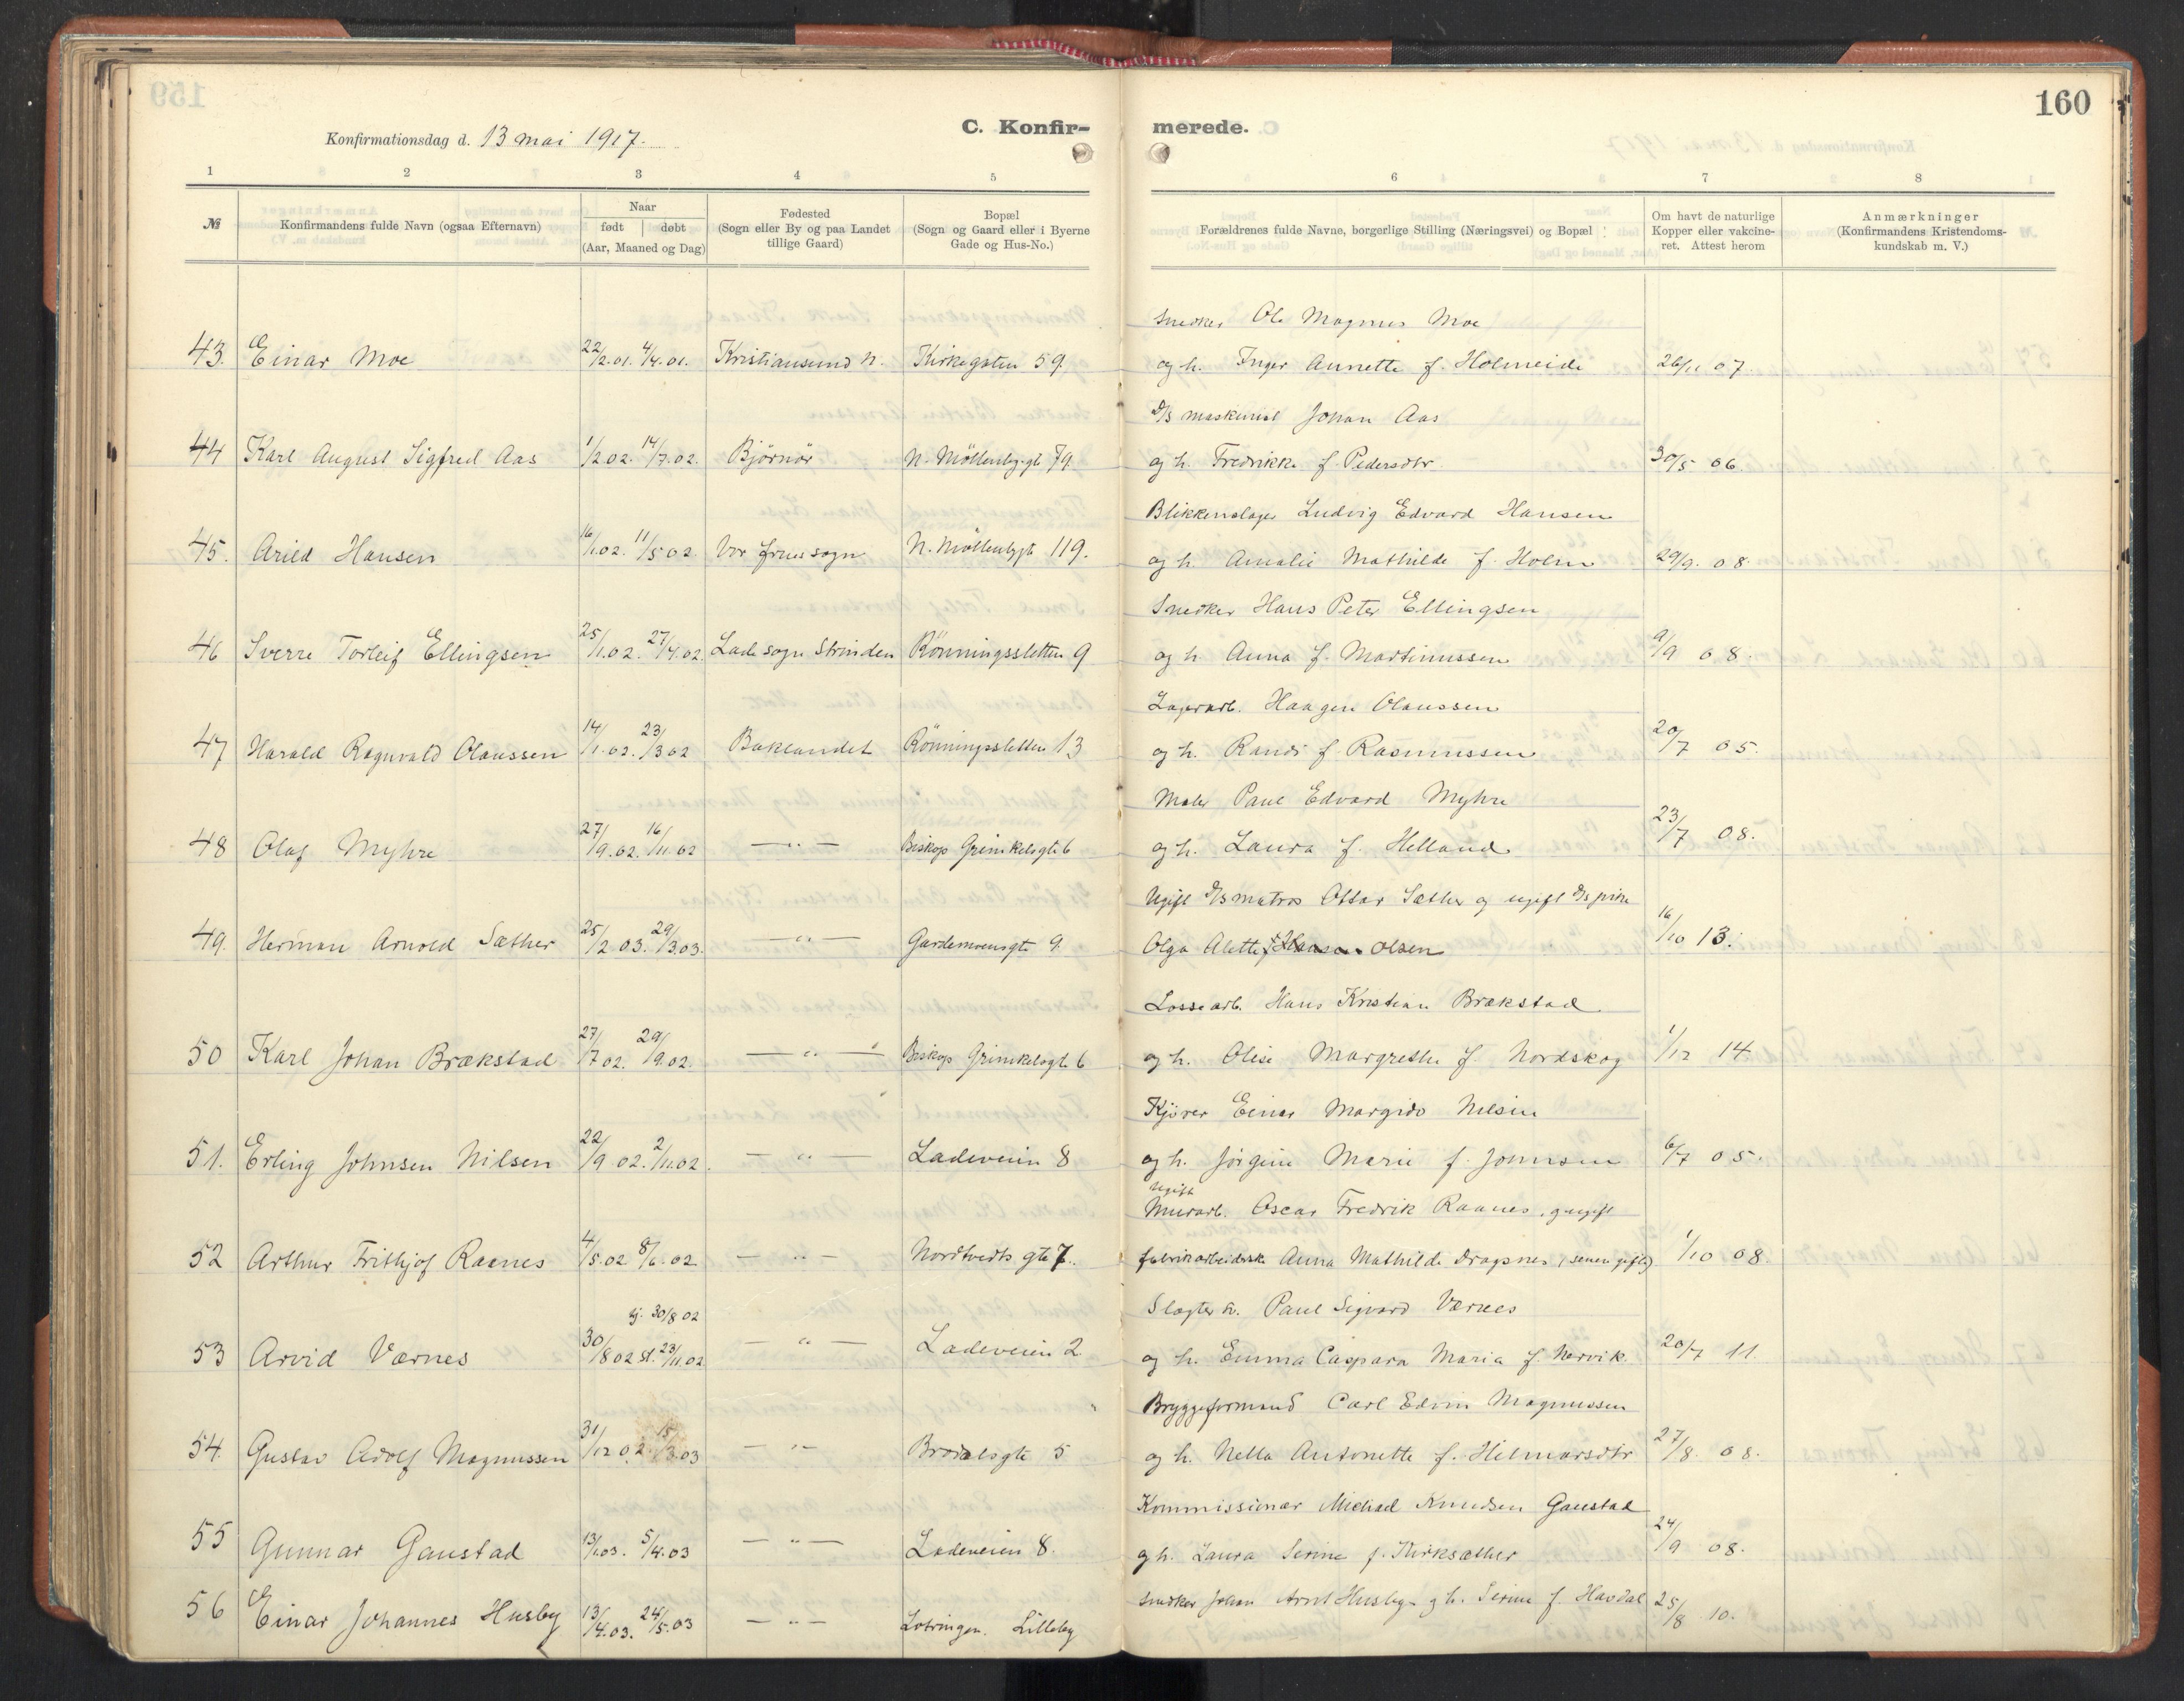 160
Konfirmationsdag d. 13 mai 1917.
C. Konfir-
merede.
1 2 3 4 5 6 7 8
№ Konfirmandens fulde Navn (ogsaa Efternavn) Naar født døbt (Aar, Maaned og Dag) Fødested (Sogn eller By og paa Landet tillige Gaard) Bopæl (Sogn og Gaard eller i Byerne Gade og Hus-No.) Forældrenes fulde Navne, borgerlige Stilling (Næringsvei) og Bopæl Om havt de naturlige Kopper eller vakcineret. Attest herom Anmærkninger (Konfirmandens Kristendomskundskab m. V.)
Snedker Ole Magnus Moe
43. Einar Moe 22/2.01. 4/4.01. Kristiansund N. Kirkegaten 59. og h. Inger Annette f. Holmeide 26/11 07.
D/S maskinist Johan Aas
44 Karl August Sigfred Aas 1/2 02. 14/7.02. Björnör N. Möllenbg.gt 79 og h. Fredrikke f. Pedersdtr. 30/5 06.
Blikkenslager Ludvig Edvard Hansen
45. Arild Hansen 16/1.02. 11/5 02. Vor frues sogn N. Möllenbgt 119. og h. Amalie Mathilde f. Holm 29/9. 08.
Snedker Hans Peter Ellingsen
46 Sverre Torleif Ellingsen 25/1.02. 27/4.02. Lade sogn Strinden Rönningssletten 9 og h. Anna f. Martinussen 9/9 08.
Lagerarb. Haagen Olaussen
47 Harald Ragnvald Olaussen 14/1.02. 23/3 02 Baklandet Rönningssletten 13 og h. Randi f. Rasmussen 20/7 05.
Maler Paul Edvard Myhre
48 Olaf Myhre 27/9.02. 16/11.02 — „ — Biskop Grimkelsgt. 6 og h. Laura f. Helland 23/7 08.
Ugift D/S matros Ottar Sæther og ugift D/S pike
49. Herman Arnold Sæther 25/2 03. 29/3.03. — „ — Gardemoensgt 9. Olga Alette f. Hansen Olsen 16/10 13.
Lossearb. Hans Kristian Brækstad
50 Karl Johan Brækstad 27/7 02. 29/9.02. — „ — Biskop Grimkelsgt. 6 og h. Olise Margrethe f. Nordskog 1/12 14
Kjörer Einar Margido Nilsen
51. Erling Johnsen Nilsen 22/9 02. 2/11.02. — „ — Ladeveien 8 og h. Jörgine Marie f. Johnsen 6/7 05.
Ugift
Murarb. Oscar Fredrik Raanes, og ugift
52 Arthur Frithjof Raanes 4/5.02 8/6.02 — „ — Nordtvedts gte 7. fabrikarbeiderske Anna Mathilde Dragsnes (senere gifte) 1/10 08.
hj. 30/8 02
Slagter h. Paul Sigvard Værnes
53 Arvid Værnes 30/8 02 st. 23/11.02 — „ — Ladeveien 2 og h. Emma Caspara Maria f. Nervik. 20/7 11.
Bryggeformand Carl Edvin Magnussen
54. Gustav Adolf Magnussen 31/12 02. 15/3.03 — „ — Brodalsgte 5 og h. Nella Antonette f. Hilmarsdtr 27/8. 08.
Kommissionær Michael Knudsen Gaustad
55 Gunnar Gaustad 13/1.03. 5/4.03 — „ — Ladeveien 8. og h. Laura Serine f. Kirksæther 24/9 08.
56 Einar Johannes Husby 13/4.03. 24/5.03 — „ — Lotringen. Lilleby Snedker Johan Arnt Husby og h. Serine f. Havdal 25/8 10.